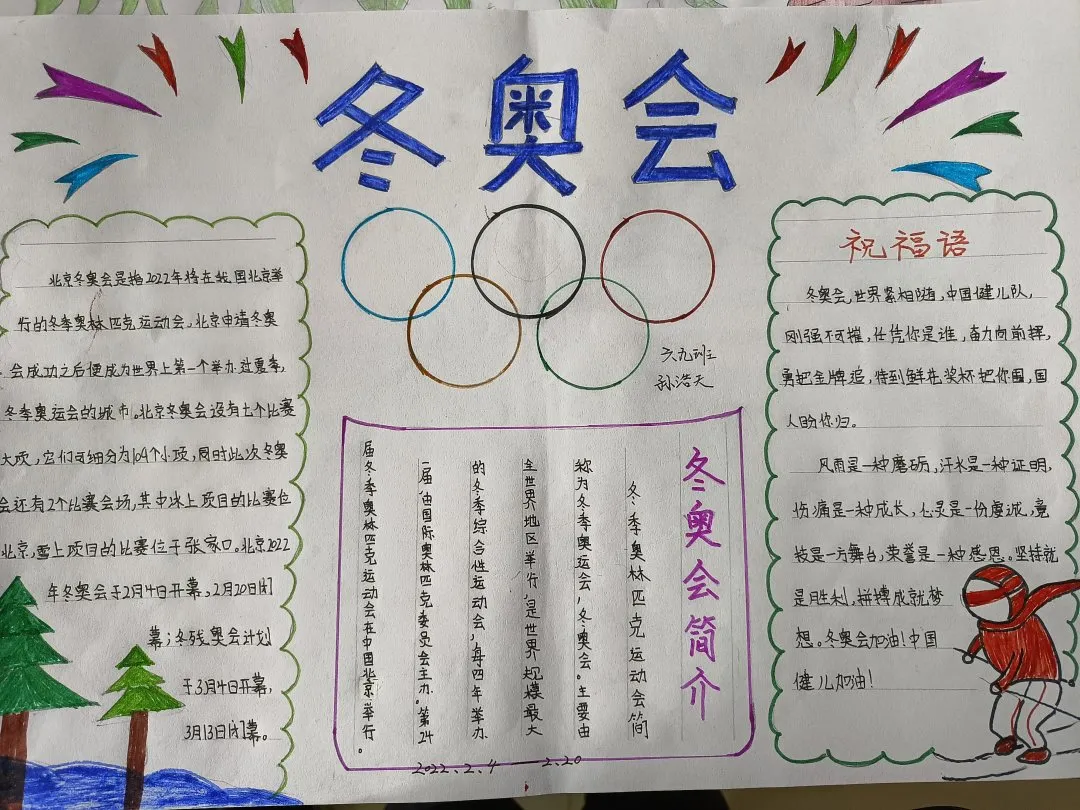 冬奥会
北京冬奥会是指2022年将在我国北京举
行的冬季奥林匹克运动会,北京申请冬奥
会成功之后便成为世界上第一个举办过夏季,
冬季奥运会的城市。北京冬奥会设有七个比赛
大项,它们可细分为104个小项,同时此次冬奥
会还有2个比赛会场,其中冰上项目的比赛位
北京,雪上项目的比赛位于张家口。北京2022
年冬奥会于2月4日开幕,2月20日闭
幕;冬残奥会计划
于3月4日开幕,
3月13日闭幕。
六九班
孙浩天
冬奥会简介
冬季奥林匹克运动会简
称为冬季奥运会,冬奥会。主要由
全世界地区举行,是世界规模最大
的冬季综合性运动会,每四年举办
一届,由国际奥林匹克委员会主办。第24
届冬季奥林匹克运动会在中国北京举行。
2022.2.4——2.20
祝福语
冬奥会,世界紧相随,中国健儿队,
刚强不可摧,任凭你是谁,奋力向前挥,
勇把金牌追,待到鲜花奖杯把你围,国
人盼你归。
风雨是一种磨砺,汗水是一种证明,
伤痛是一种成长,心灵是一份虔诚,竟
技是一方舞台,荣誉是一种感恩。坚持就
是胜利,拼搏成就梦
想。冬奥会加油!中国
健儿加油!